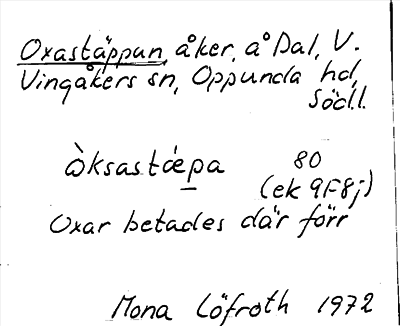 Oxastäppun, åker, å Dal, V.
Vingåkers sn, Oppunda hd,
Södl.
òksastæ̀pa 80
(ek 9F8j)
Oxar betades där förr
Mona Löfroth 1972